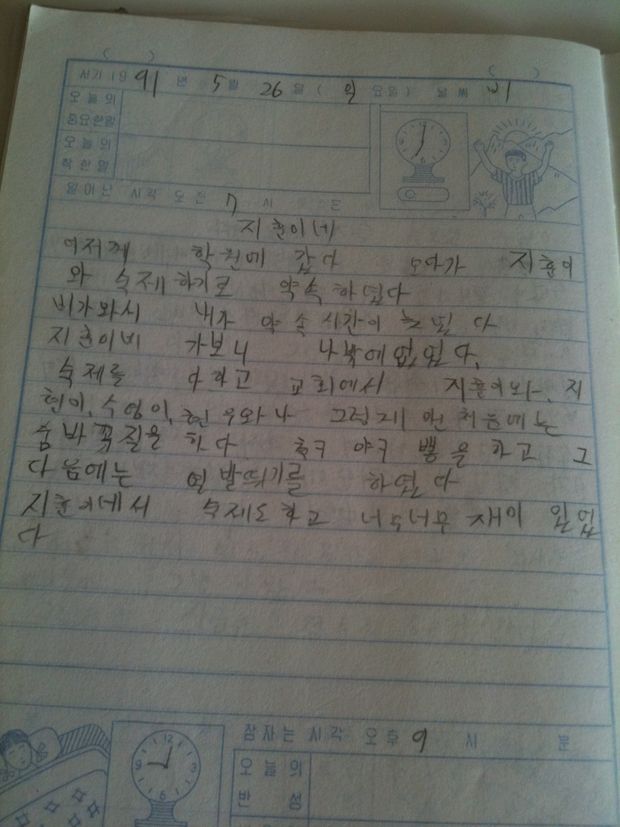 ( ) ( )
서기 19 91 년 5월 26일 ( 일 요일) 날씨 비
오늘의
중요한일
오늘의
착한일
일어난 시각 오전 7 시 분
지훈이네
어저께 학원에 갔다 오다가 지훈이
와 숙제하기로 약속하였다
비가와서 내가 약속시간이 늦었다
지훈이네 가보니 나밖에없었다.
숙제를 다하고 교회에서 지훈이와, 지
현이, 수영이, 현우와 나 그렇게 맨처음에는
숨바꼭질을 하다 축구 야구 뽕을 하고 그
다음에는 열발뛰기를 하였다
지훈이네서 숙제도하고 너무너무 재미 있었
다
잠자는 시각 오후 9 시 분
오늘의
반성
12
3
6
9